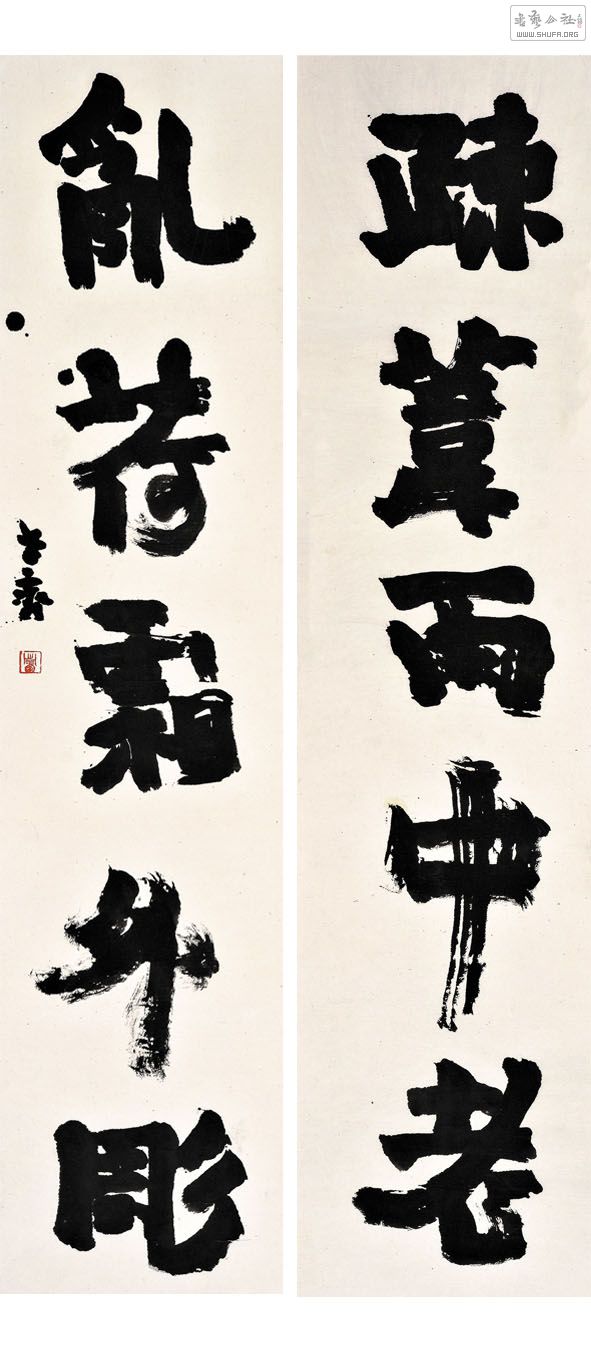 書藝公社
WWW.SHUFA.ORG
疎葦雨中老
亂荷霜外彫